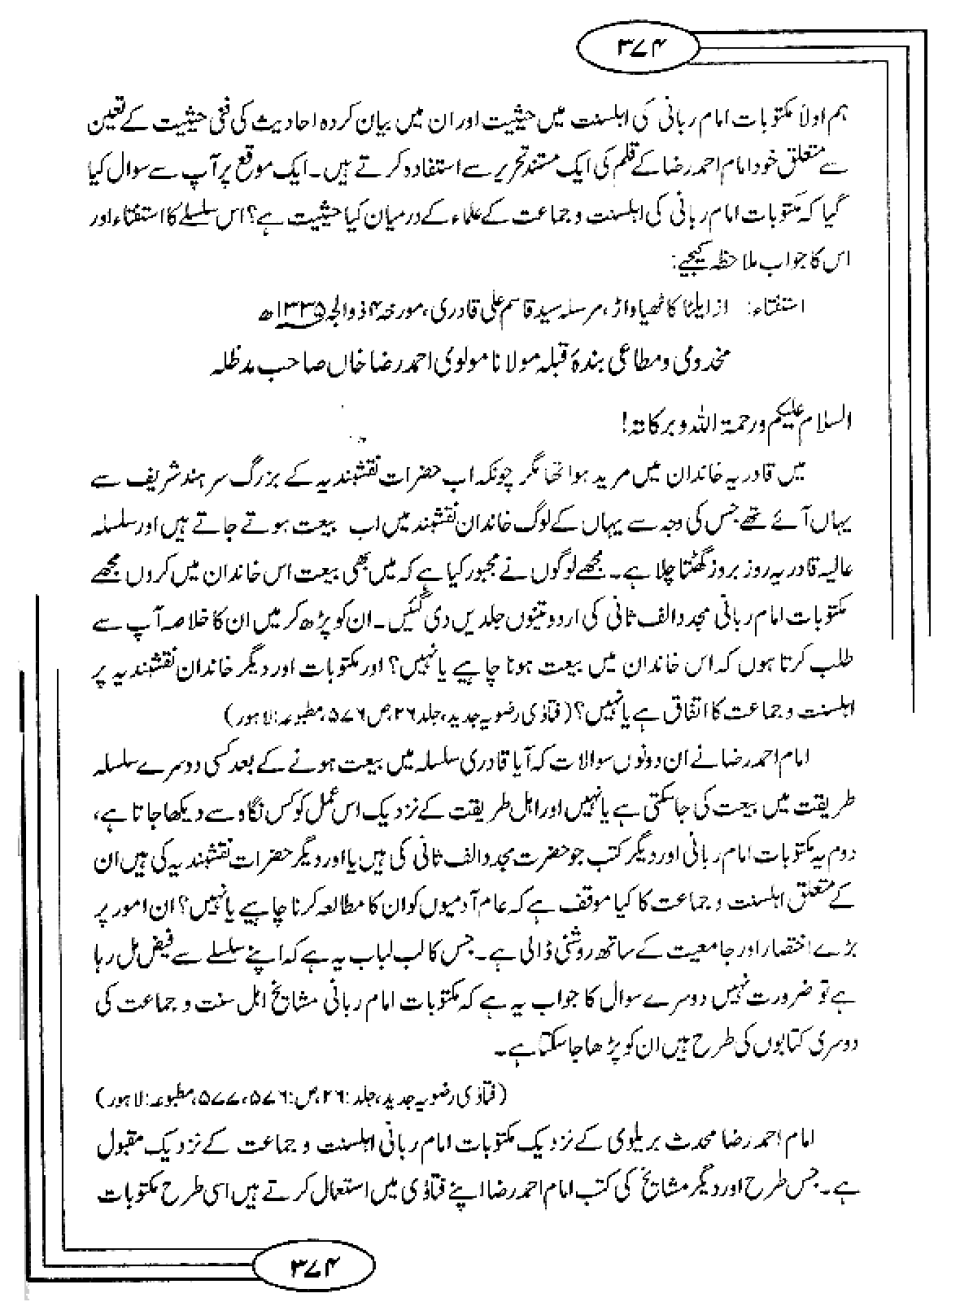 ۳۷۴
ہم اولاً مکتوبات امام ربانی کی اہلسنت میں حیثیت اور ان میں بیان کردہ احادیث کی فنی حیثیت کے تعین
سے متعلق خود امام احمد رضا کے قلم کی ایک مستند تحریر سے استفادہ کرتے ہیں۔ ایک موقع پر آپ سے سوال کیا
گیا کہ مکتوبات امام ربانی کی اہلسنت و جماعت کے علماء کے درمیان کیا حیثیت ہے؟ اس سلسلے کا استفتاء اور
اس کا جواب ملاحظہ کیجیے:
استفتاء: از ایلٹا کاٹھیاواڑ، مرسلہ سید قاسم علی قادری، مورخہ ۴ ذوالحجہ ۱۳۳۵ھ
مخدومی و مطاعی بندۂ قبلہ مولانا مولوی احمد رضا خاں صاحب مدظلہ
السلام علیکم ورحمۃ اللہ وبرکاتہ!
میں قادریہ خاندان میں مرید ہوا تھا مگر چونکہ اب حضرات نقشبندیہ کے بزرگ سرہند شریف سے
یہاں آئے تھے جس کی وجہ سے یہاں کے لوگ خاندان نقشبند میں اب بیعت ہوتے جاتے ہیں اور سلسلہ
عالیہ قادریہ روز بروز گھٹتا چلا ہے۔ مجھے لوگوں نے مجبور کیا ہے کہ میں بھی بیعت اس خاندان میں کروں مجھے
مکتوبات امام ربانی مجدد الف ثانی کی اردو تینوں جلدیں دی گئیں۔ ان کو پڑھ کر میں ان کا خلاصہ آپ سے
طلب کرتا ہوں کہ اس خاندان میں بیعت ہونا چاہیے یا نہیں؟ اور مکتوبات اور دیگر خاندان نقشبندیہ پر
اہلسنت و جماعت کا اتفاق ہے یا نہیں؟ (فتاوٰی رضویہ جدید، جلد ۲۶، ص ۵۷۶، مطبوعہ: لاہور)
امام احمد رضا نے ان دونوں سوالات کہ آیا قادری سلسلہ میں بیعت ہونے کے بعد کسی دوسرے سلسلہ
طریقت میں بیعت کی جاسکتی ہے یا نہیں اور اہل طریقت کے نزدیک اس عمل کو کس نگاہ سے دیکھا جاتا ہے،
دوم یہ مکتوبات امام ربانی اور دیگر کتب جو حضرت مجدد الف ثانی کی ہیں یا اور دیگر حضرات نقشبندیہ کی ہیں ان
کے متعلق اہلسنت و جماعت کا کیا موقف ہے کہ عام آدمیوں کو ان کا مطالعہ کرنا چاہیے یا نہیں؟ ان امور پر
بڑے اختصار اور جامعیت کے ساتھ روشنی ڈالی ہے۔ جس کا لب لباب یہ ہے کہ اپنے سلسلے سے فیض مل رہا
ہے تو ضرورت نہیں دوسرے سوال کا جواب یہ ہے کہ مکتوبات امام ربانی مشایخ اہل سنت و جماعت کی
دوسری کتابوں کی طرح ہیں ان کو پڑھا جاسکتا ہے۔
(فتاوٰی رضویہ جدید، جلد: ۲۶، ص: ۵۷۶، ۵۷۷، مطبوعہ: لاہور)
امام احمد رضا محدث بریلوی کے نزدیک مکتوبات امام ربانی اہلسنت و جماعت کے نزدیک مقبول
ہے۔ جس طرح اور دیگر مشایخ کی کتب امام احمد رضا اپنے فتاوٰی میں استعمال کرتے ہیں اسی طرح مکتوبات
۳۷۴